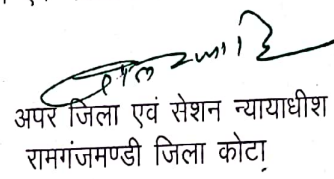 अपर जिला एवं सेशन न्यायाधीश
रामगंजमण्डी जिला कोटा